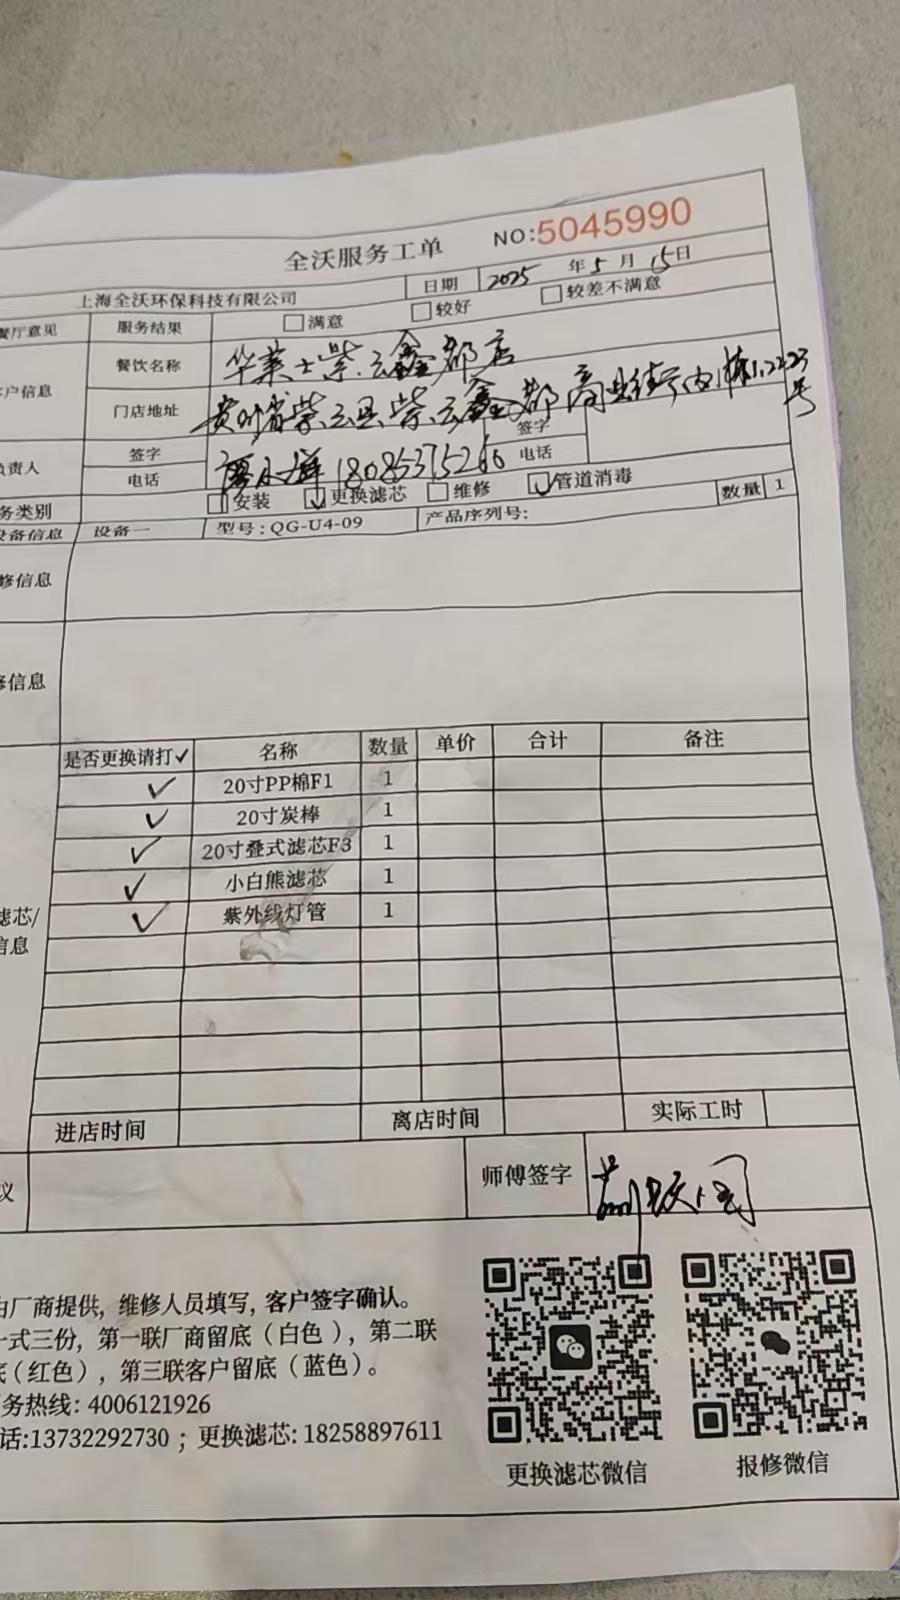 全沃服务工单 NO:5045990
上海全沃环保科技有限公司 日期 2025年5月15日
餐厅意见 服务结果 满意 较好 较差不满意
户信息 餐饮名称 华莱士紫云鑫都店
门店地址 贵州省紫云县紫云鑫都商业街内1栋1,2223号
负责人 签字 签字
电话 18085375266 电话
务类别 安装 更换滤芯 维修 管道消毒
设备信息 设备一 型号:QG-U4-09 产品序列号: 数量 1
修信息
修信息
是否更换请打✓ 名称 数量 单价 合计 备注
✓ 20寸PP棉F1 1
✓ 20寸炭棒 1
✓ 20寸叠式滤芯F3 1
✓ 小白熊滤芯 1
✓ 紫外线灯管 1
滤芯/
信息
进店时间 离店时间 实际工时
议 师傅签字
由厂商提供, 维修人员填写, 客户签字确认。
一式三份, 第一联厂商留底（白色）, 第二联
底（红色）, 第三联客户留底（蓝色）。
务热线: 4006121926
话:13732292730 ; 更换滤芯: 18258897611
更换滤芯微信 报修微信